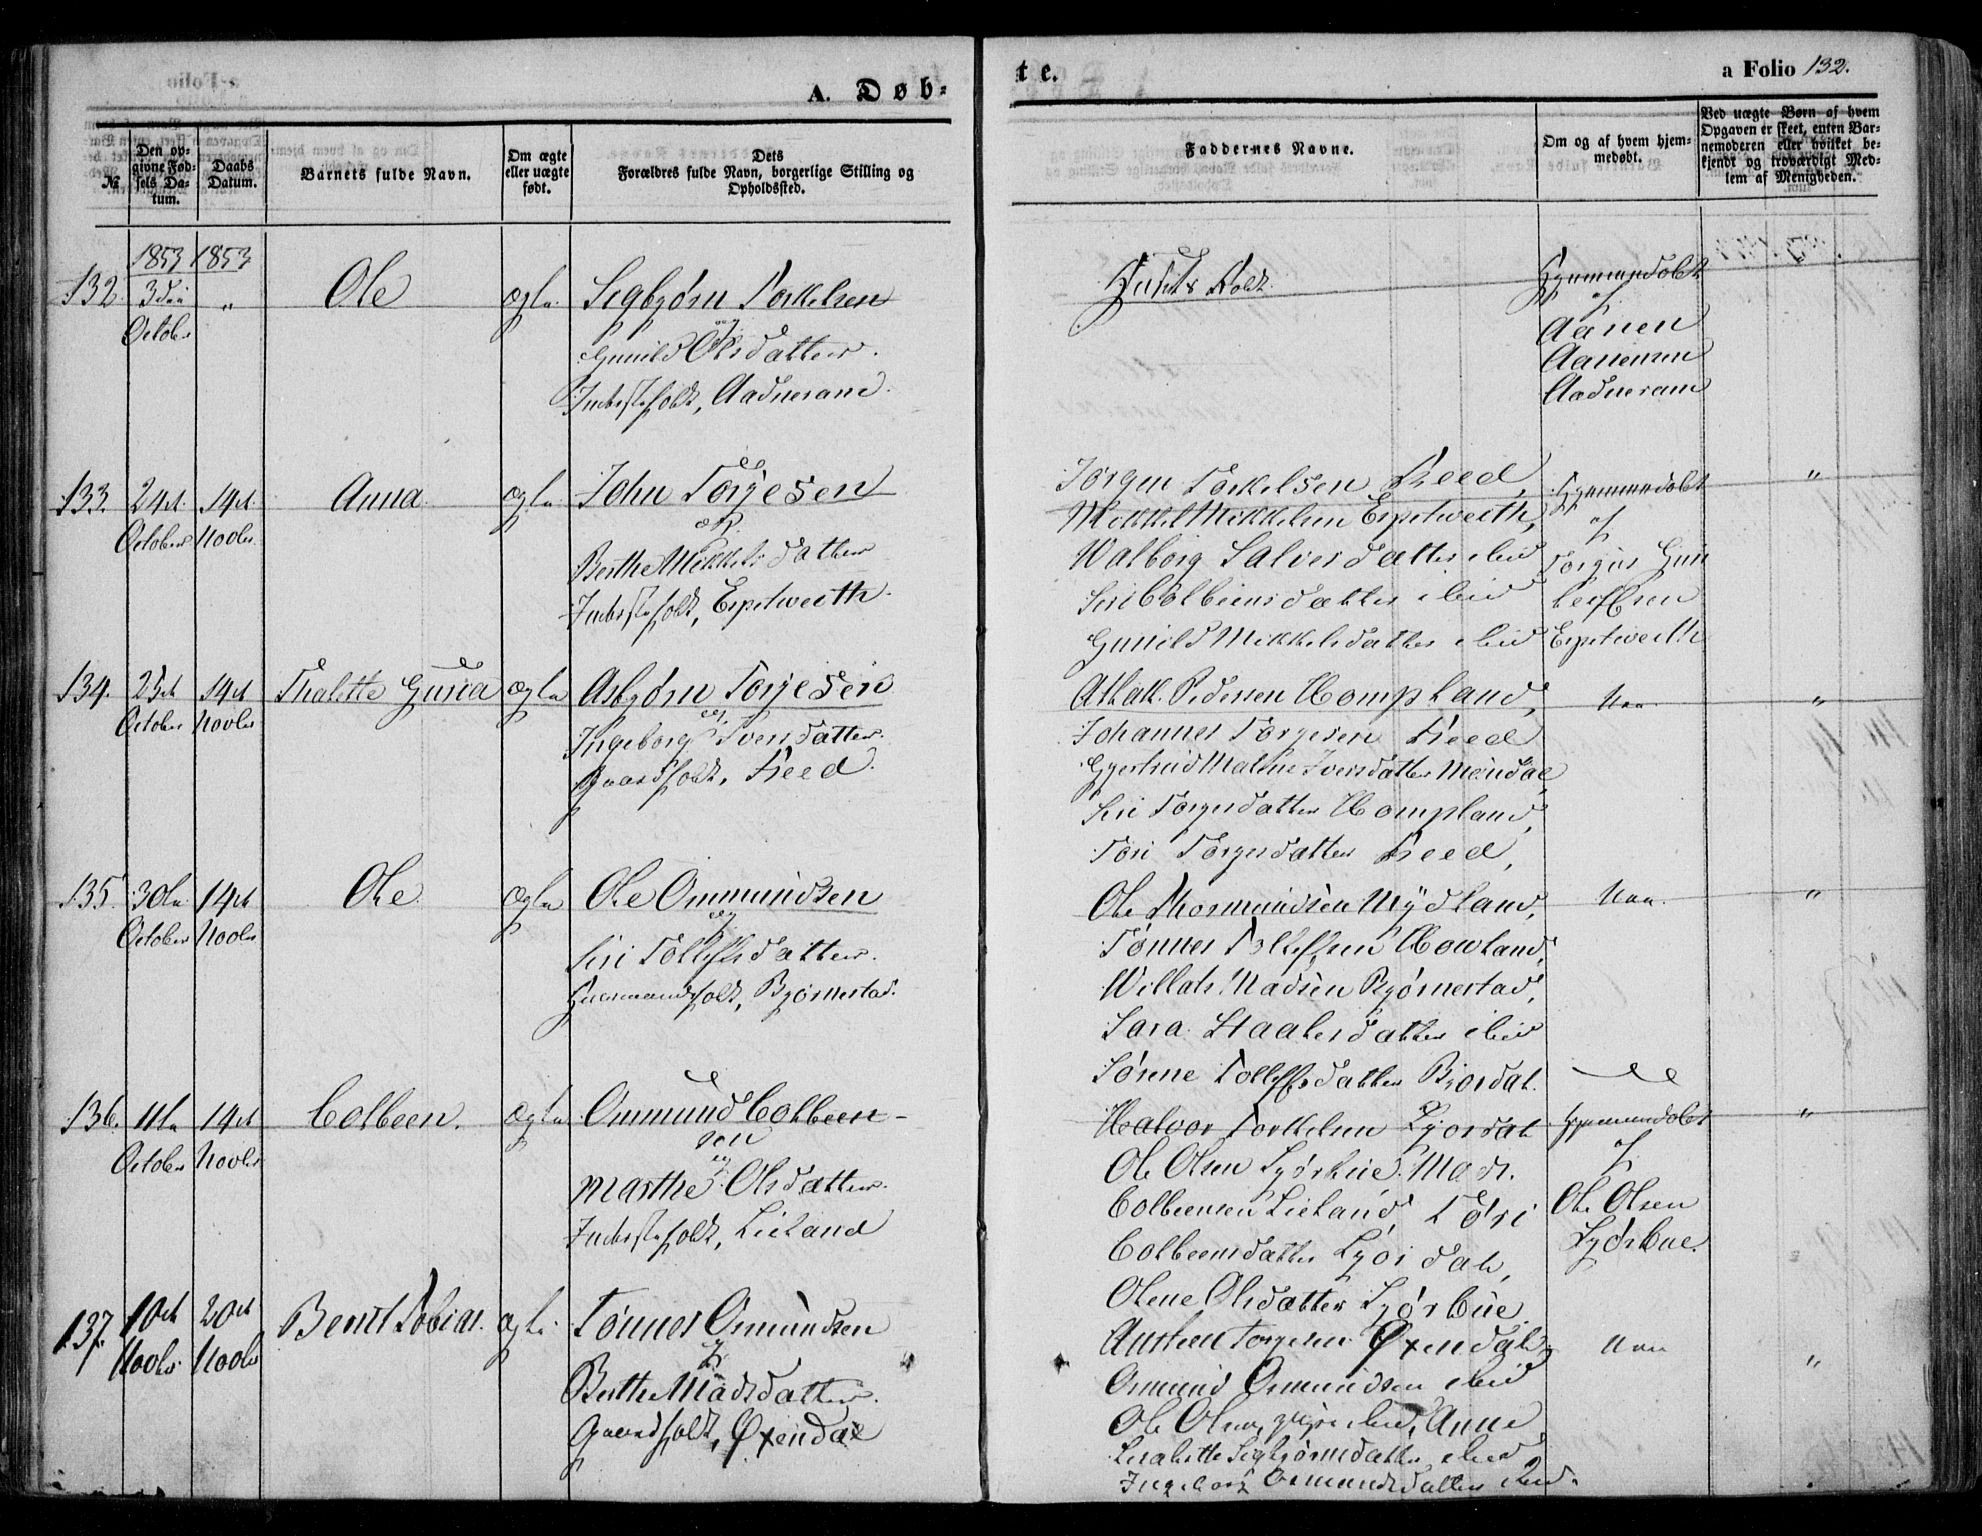 A. Døb-
te.
a Folio 132.
№
Den opgivne Fødsels Datum.
Daabs Datum.
Barnets fulde Navn.
Om ægte eller uægte født.
Dets Forældres fulde Navn, borgerlige Stilling og Opholdssted.
Faddernes Navne.
Om og af hvem hjemmedøbt.
Ved uægte Børn af hvem Opgaven er skeet, enten Barnemoderen eller hvilket bekjendt og troværdigt Medlem af Menigheden.
1853 1853
132. 3die October
"
Ole
ægte.
Sigbjørn Torkelsen
og
Gunild Olsdatter.
Inderstefolk, Aadneram.
Hjemmedøbt
af
Aanen
Aanensen
Aadneram
133. 24de October
14de Novbr.
Anna
ægte.
John Torjesen
og
Berthe Mikkelsdatter
Inderstefolk, Espetveith.
Jørgen Torkelsen Fleed,
Mikkel Mikkelsen Espetweith,
Walborg Salvesdatter ibid
Siri Colbeinsdatter ibid
Gunild Mikkelsdatter ibid
Hjemmedøbt
af
Espetweith
"
134. 25de October
14de Novbr
Thalette Guria
ægte
Asbjørn Torjesen
og
Ingeborg Iversdatter.
Gaardfolk, Fleed.
Aslak Pedersen Hompland,
Johannes Torgesen Fleed
Malene Iversdatter
Siri Torgersdatter Hompland,
Tori Torgersdatter Fleed,
Nei.
"
135. 30te October
14de Novbr
Ole
ægte
Ole Ommundsen
og
Siri Tollefsdatter.
Huusmandsfolk, Bjørnestad.
Ole Thormundsen Mydland,
Tønnes Tollefsen Howland,
Willats Madsen Bjørnestad,
Sara Staalesdatter ibid
Sørene Tollefsdatter
Nei.
"
136. 11te October
14de Novbr
Colbeen.
ægte
Ommund Colbeen-
sen
og
Marthe Olsdatter.
Inderstefolk, Lieland
Halvor Torkelsen
Ole Olsen Mads
Colbeensen Lieland, Tóri
Colbeensdatter
Olene Olsdatter
Hjemmedøbt
af
Ole Olsen
"
137. 10de Novbr.
20de Novbr
Berntt Tobias.
ægte.
Tønnes Omundsen
og
Berthe Madsdatter.
Gaardfolk, Øxendal
Torgesen Øxendal,
Omund Omundsen ibid
Ole Olsen ibid, Anne
Lisabette Sigbjørnsdatter ibid
Ingeborg Osmundsdatter ibid.
Nei
"